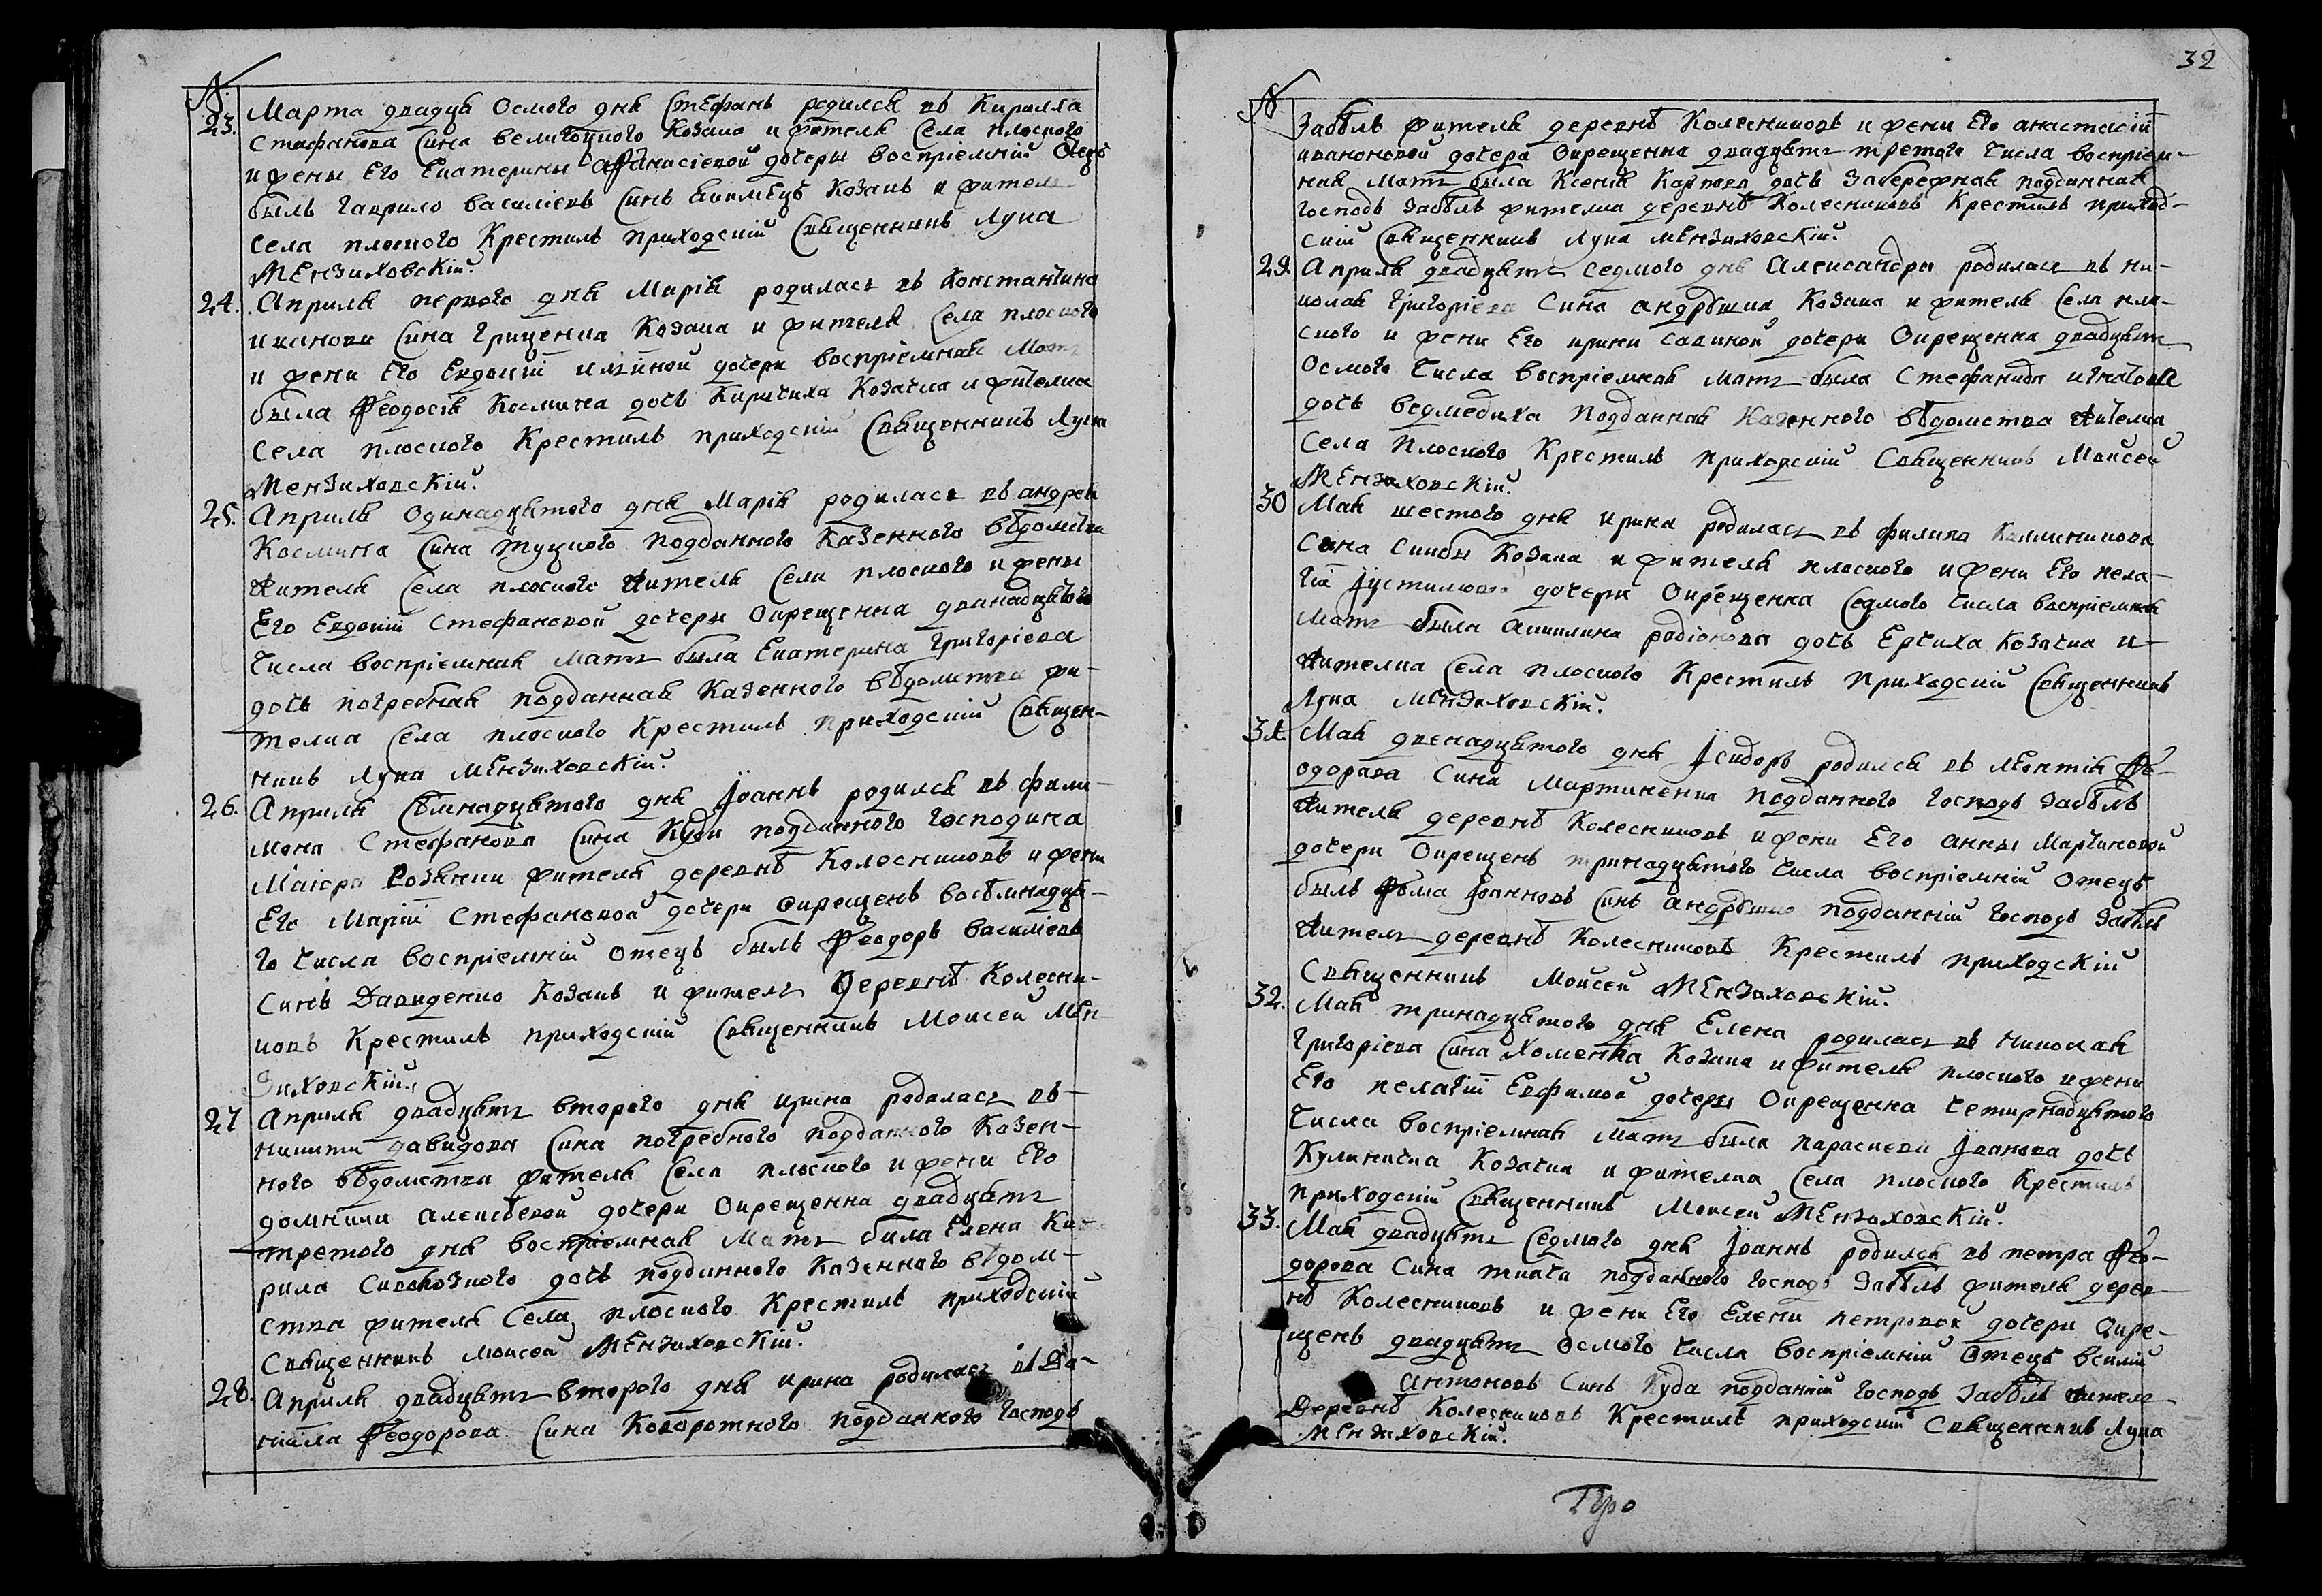 №
23. Марта двадця Осмого дня Стефанъ родился въ Кирилла
Стафанова Сина великоцкого Козака и жителя Села плоского
и жены Его Екатерины Афанасіевой дочери воспріемній Отецъ
былъ Гаврило василіевъ Синъ Козакъ и жителъ
Села плоского Крестилъ приходскій Священникъ Лука
Мензиховскій.
24. Априля первого дня Марія родилась въ Константина
иванова Сина Гриценка Козака и жителя Села плоского
и жени Его Евдокіи иліиной дочери воспріемная Мать
была Феодосія Космина дочь Киричиха Козачка и жителка
Села плоского Крестилъ приходскій Священникъ Лука
Мензиховскій.
25. Априля Одинадцятого дня Марія родилась въ андрея
Космина Сина туцкого подданного Казенного вѣдомства
жителя Села плоского жителя Села плоского и жены
Его Евдокіи Стефановой дочери Окрещенна дванадцятого
Числа воспріемная Мать была Екатерина Григоріева
дочь погребная подданная Казенного вѣдомства жи-
телка Села плоского Крестилъ приходскій Священ-
никъ Лука Мензиховскій.
26. Априля Сѣмнадцятого дня Іоаннъ родился въ фили-
мона Стефанова Сина Куди подданного Господина
Маіора Жителя деревнѣ Колесниковъ и жени
Его Маріи Стефановой дочери окрещенъ восѣмнадця-
го Числа воспріемній Отецъ былъ Феодоръ василіевъ
Синъ Давиденко Козакъ и жителъ Деревнѣ Колесни-
ковъ Крестилъ приходскій Священникъ Моисей Мен
зиховскій.
27 Априля двадцять второго дня ирина родилась въ-
никити давидова Сина погребного подданного Казен-
ного вѣдомства жителя Села плоского и жени Его
домникии алексѣевой дочери Окрещенна двадцять
третого дня воспріемная Мать била Елена Ки-
рила дочь подданного Казенного вѣдом-
ства жителя Села плоского Крестилъ приходскій
Священникъ Моисей Мензиховскій.
28. Априля двадцять второго дня ирина родилась въ Да-
ніила Феодорова Сина Коворотного подданного Господъ
32
№
Забѣлъ жителя деревнѣ Колесниковъ и жени Его анастасіи
ивановой дочери Окрещенна двадцять третого Числа воспріем-
ная Мать была Ксенія Карпова дочь Забережная подданная
Господъ Забѣлъ жителка деревнѣ Колесниковъ Крестилъ приход-
скій Священникъ Лука Мензиховскій.
29. Априля двадцять седмого дня Александра родилась въ ни-
колая Григоріева Сина андрѣшка Козака и жителя Села пло-
ского и жени Его ирини савиной дочери Окрещенна двадцять
Осмого Числа воспріемная мать была Стефанида игнатова
дочь ведмедиха подданная Казенного вѣдомства жителка
Села Плоского Крестилъ приходскій Священникъ Моисей
Мензиховскій.
30 Мая шестого дня ирина родилась въ филипа Каллиникова
Сина Скибы Козака и жителя плоского и жени Его пела-
гіи Іустиновой дочери Окрещенна Седмого Числа воспріемная
Мать была акилина радіонова дочь Ерчиха Козачка и-
жителка Села плоского Крестилъ приходскій Священникъ
Лука Мензиховскій.
31. Мая дванадцятого дня Ісидоръ родился въ леонтія Фе-
одорова Сина Мартиненка подданного Господъ Забѣлъ
жителя деревнѣ Колесниковъ и жени Его анны Мартиновой
дочери Окрещенъ тринадцятого Числа воспріемній Отецъ
былъ Фома Іоанновъ Синъ андрѣшко подданній Господъ Забѣлъ
жителъ деревнѣ Колесниковъ Крестилъ приходскій
Священникъ Моисей Мензиховскій.
32. Мая тринадцятого дня Елена родилась въ николая
Григоріева Сина Хоменка Козака и жителя плоского и жени
Его пелагіи Евфимой дочеры Окрещенна Четирнадцятого
Числа воспріемная Мать была параскева Іванова дочь
Кулиничка Козачка и жителка Села плоского Крестилъ
приходскій Священникъ Моисей Мензиховскій.
33. Мая двадцять Седмого дня Іоаннъ родился въ петра Фео-
дорова Сина ткача подданного Господъ Забѣлъ жителя дерев-
нѣ Колесниковъ и жени Его Елени петровой дочери Окре-
щенъ двадцять Осмого Числа воспріемній Отецъ
антоновъ Синъ Куда подданній Господъ Забѣлъ жителъ
Деревнѣ Колесниковъ Крестилъ приходскій Священникъ Лука
Мензиховскій.